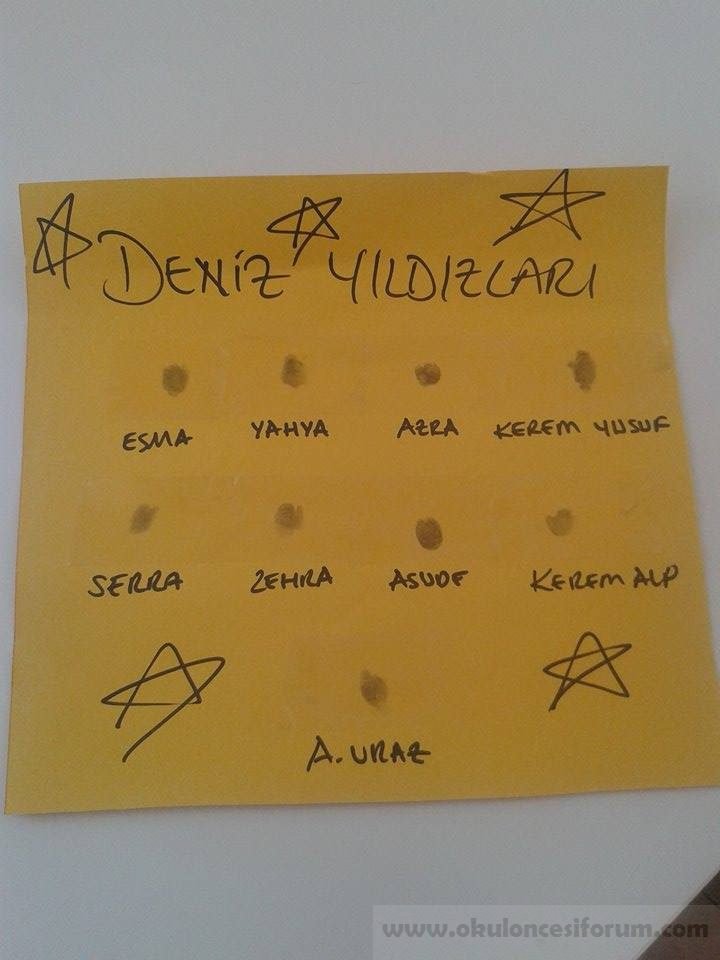 DENİZ YILDIZLARI
ESMA YAHYA AZRA KEREM YUSUF
SERRA ZEHRA ASUDE KEREM ALP
A. URAZ
www.okuloncesiforum.com